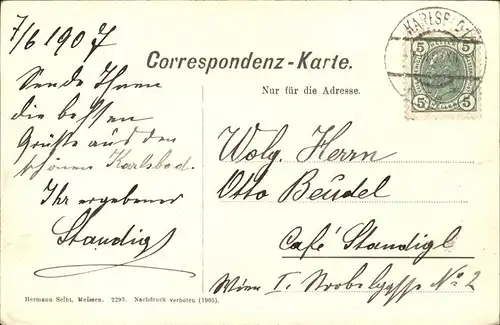 7/6 1907
Sende Ihnen
die besten
Grüße aus dem
schönen Karlsbad.
Ihr ergebener
Standigl
Correspondenz-Karte.
Nur für die Adresse.
KARLSBAD
5 5
5 5
Wolg. Herrn
Otto Beudel
Café Standigl
Wien I. No 2
Hermann Seibt, Meissen. 2293. Nachdruck verboten (1905).